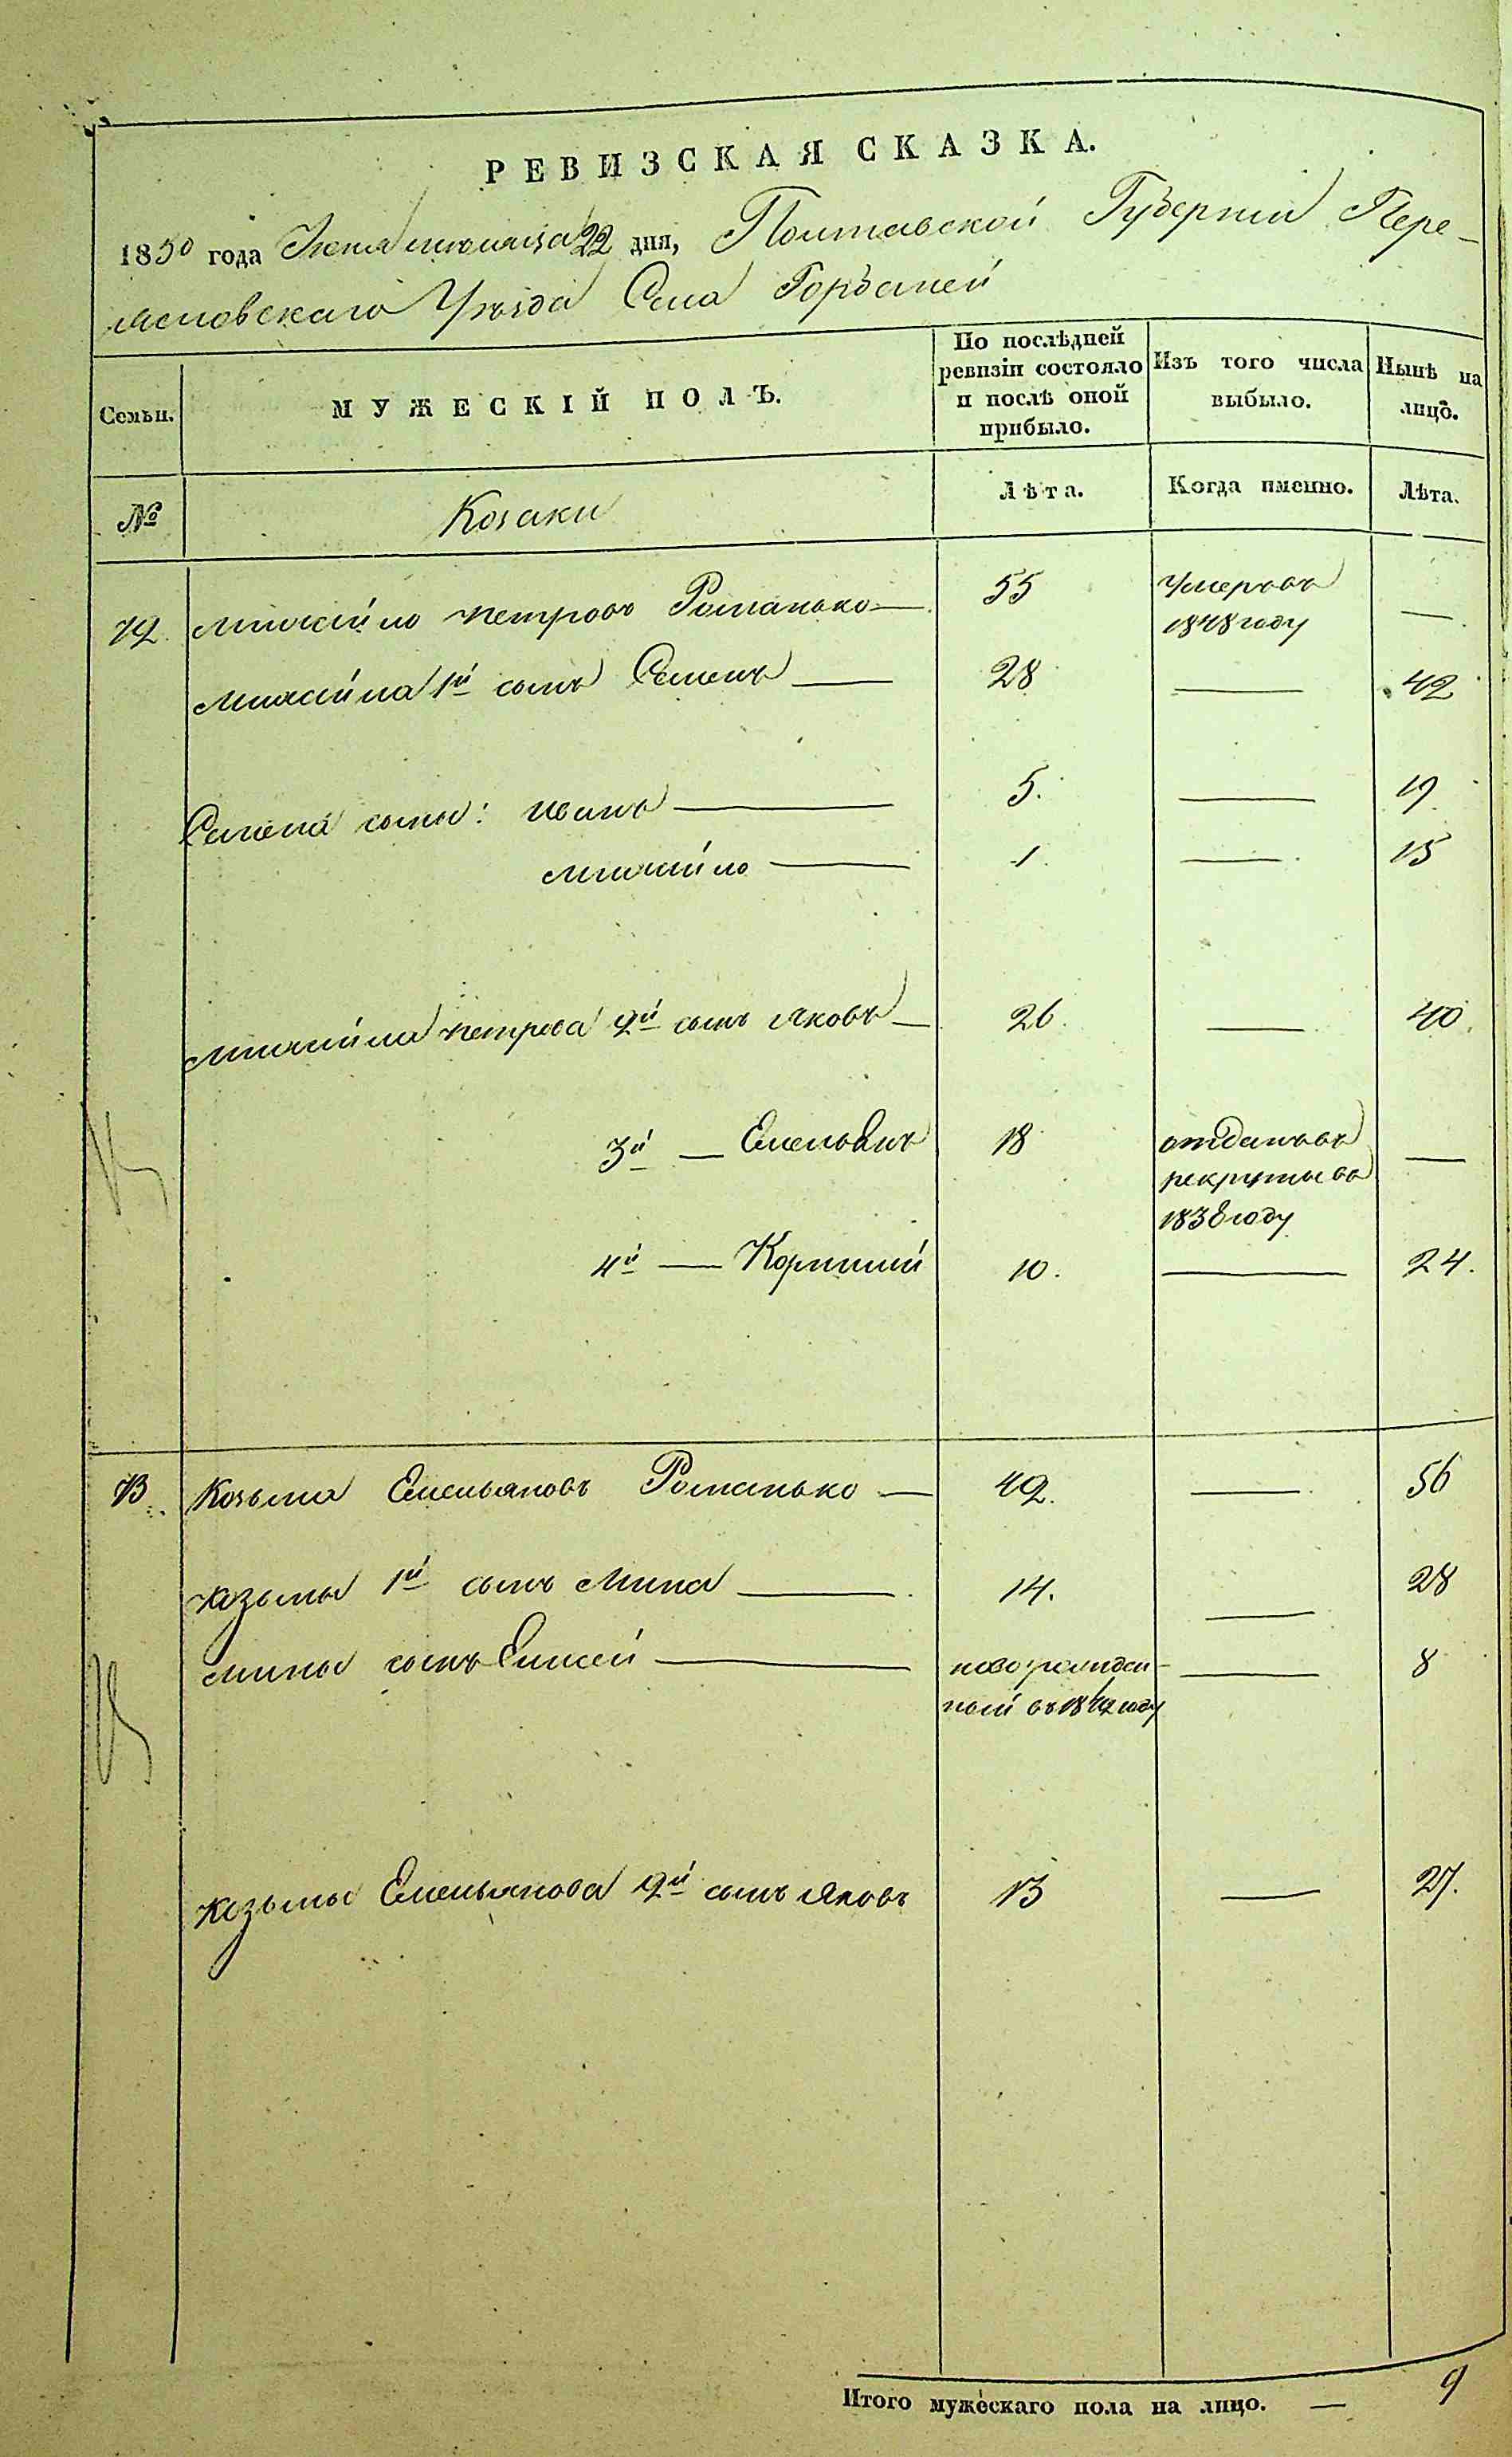 РЕВИЗСКАЯ СКАЗКА.
1850 года Іюня мѣсяца 22 дня, Полтавской Губерніи Пере-
яславскаго Уѣзда Села Горбаней
Семьи.
МУЖЕСКІЙ ПОЛЪ.
По послѣдней
ревизіи состояло
и послѣ оной
прибыло.
Изъ того числа
выбыло.
Нынѣ на
лицо.
№
Козаки
Лѣта.
Когда именно.
Лѣта.
72. Михайло Петровъ Романько — 55 Умеръ въ —
1848 году
Михайла 1й сынъ Семенъ — 28 — 42
Семена сыны: Иванъ — 5. — 19
Михайло — 1. — 15
Михайла Петрова 2й сынъ Яковъ — 26. — 40.
3й — Емельянъ 18 отданъ въ —
рекруты въ
1838 году
4й — Корнилій 10. — 24.
73. Козьма Емельяновъ Романько — 42. — 56
Козьмы 1й сынъ Мина — 14. — 28
Мины сынъ Елисей — новорожден- — 8
ный въ 1842 году
Козьмы Емельянова 2й сынъ Яковъ 13 — 27.
Итого мужескаго пола на лицо. — 9